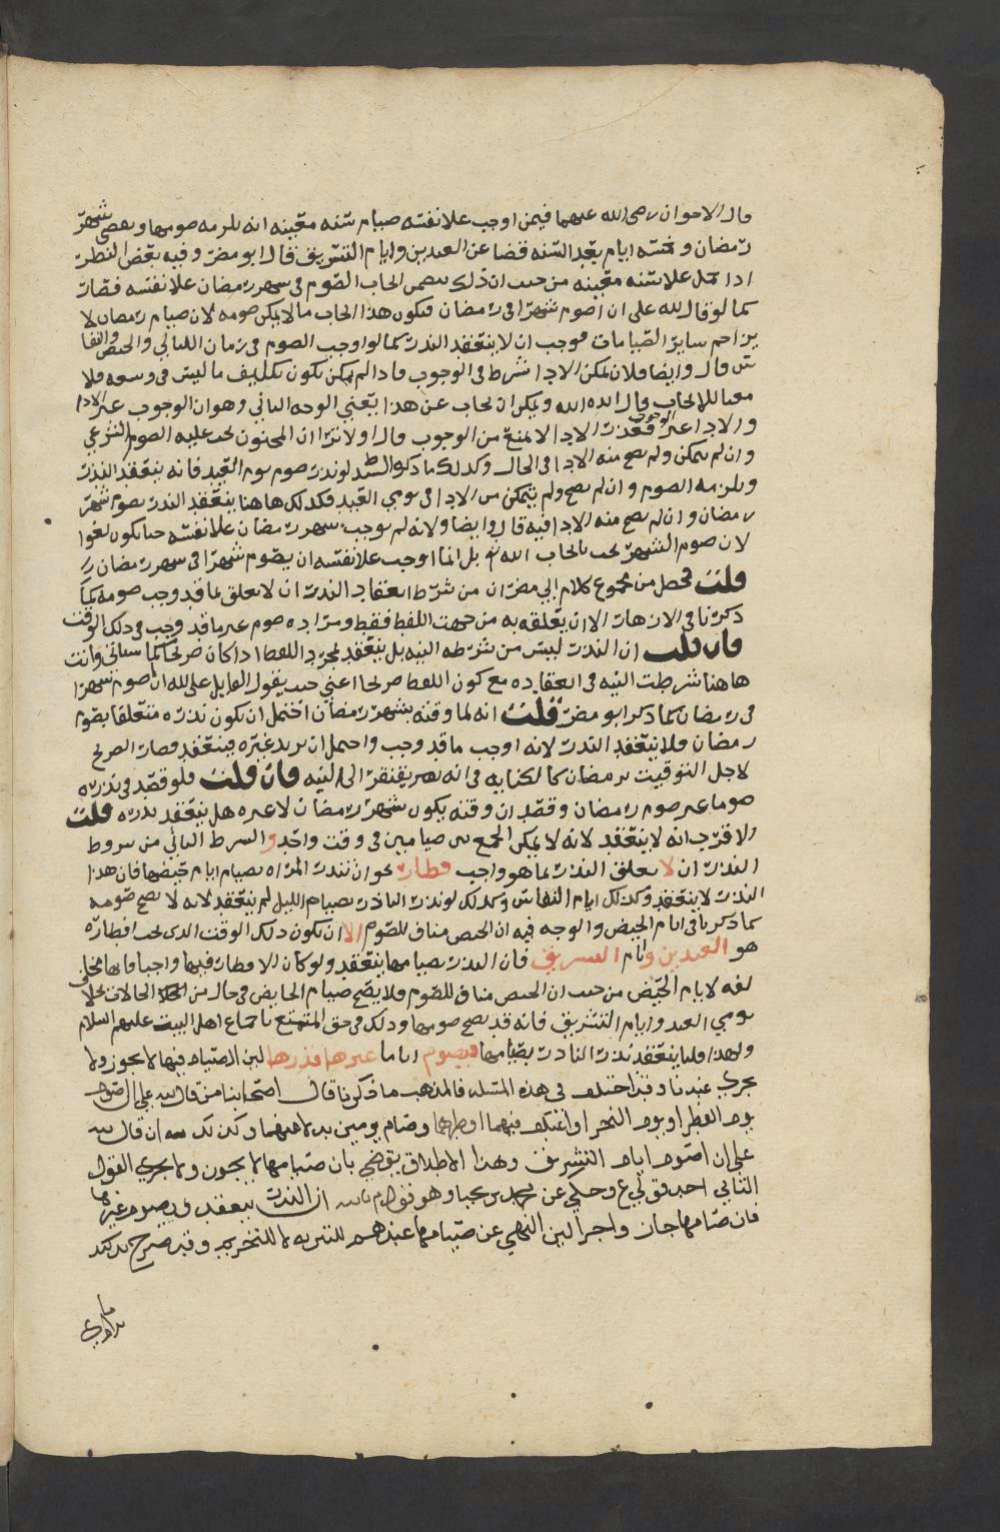 قال الاخوان رضي الله عنهما فيمن اوجب علا نفسه صيام سنه معينه انه يلزمه صومها ويقضي شهر
رمضان وخمسه ايام بعد السنه قضا عن العيدين وايام التشريق قال ابو مضر وفيه بعض النظر
اذا حمل علا سنه معينه من حيث ان ذلك يتضمن ايجاب الصوم في شهر رمضان علا نفسه فصار
كما لو قال لله علي ان اصوم شهرا في رمضان فيكون هذا ايجاب ما لا يمكن صومه لان صيام رمضان لا
يزاحم ساير الصيامات فوجب ان لا ينعقد النذر كما لو اوجب الصوم في زمان الليالي والحيض والنفا
س قال وايضا فلان تمكن الادا شرط في الوجوب فاذا لم يمكن يكون تكليف ما ليس في وسعه فلا
معنا للايجاب قال ايده الله ويمكن ان يجاب عن هذا يعني الوجه الثاني وهو ان الوجوب غير الادا
والادا غير الوجوب فتعذر الادا لا يمنع من الوجوب قال اولا ترا ان المجنون يجب عليه الصوم الشرعي
وان لم يتمكن ولم يصح منه الادا في الحال وكذلك ما ذكره السيد لو نذر صوم يوم العيد فانه ينعقد النذر
ويلزمه الصوم وان لم يصح ولم يتمكن من الادا في يومي العيد فكذلك هاهنا ينعقد النذر بصوم شهر
رمضان وان لم يصح منه الادا فيه قال وايضا ولانه لم يوجب شهر رمضان علا نفسه حتا يكون لغوا
لان صوم الشهر يجب بايجاب الله تع بل انما اوجب علا نفسه ان يصوم شهرا في شهر رمضان
قلت فحصل من مجموع كلام ابي مضر ان من شرط انعقاد النذر ان لا يعلق بما قد وجب صومه كما
ذكرنا في الازهار الا ان يعلقه به من جهت اللفظ فقط ومراده صوم غير ما قد وجب في ذلك الوقت
فان قلت ان النذر ليس من شرطه النيه بل ينعقد بمجرد اللفظ اذا كان صريحا كما سياتي وانت
هاهنا شرطت النيه في انعقاده مع كون اللفظ صريحا اعني حيث يقول القايل علي لله ان اصوم شهرا
في رمضان كما ذكر ابو مضر قلت انه لما وقته بشهر رمضان احتمل ان يكون نذره متعلقا بصوم
رمضان فلا ينعقد النذر لانه اوجب ما قد وجب واحتمل ان يريد غيره فينعقد فصار الصريح
لاجل التوقيت برمضان كالكنايه في انه يفتقر الى النيه فان قلت فلو قصد في نذره
صوما غير صوم رمضان وقصد ان وقته يكون شهر رمضان لا غيره هل ينعقد نذره قلت
الاقرب انه لا ينعقد لانه لا يمكن الجمع بين صيامين في وقت واحد والشرط الثاني من شروط
النذر ان لا يعلق النذر بما هو واجب فطار نحو ان تنذر المراه بصيام ايام حيضها فان هذا
النذر لا ينعقد وكذلك ايام النفاس وكذلك لو نذر الناذر بصيام الليل لم ينعقد لانه لا يصح صومه
كما ذكرنا في ايام الحيض والوجه فيه ان الحيض مناف للصوم الا ان يكون ذلك الوقت الذي يجب افطاره
هو العيدين وايام التشريق فان النذر بصيامها ينعقد ولو كان الافطار فيها واجبا فانها مخا
لفه لايام الحيض من حيث ان الحيض مناف للصوم فلا يصح صيام الحايض في حال من الحالات بخلا
يومي العيد وايام التشريق فانه قد يصح صومها وذلك في حق المتمتع باجماع اهل البيت عليهم السلام
ولهذا قلنا ينعقد نذر الناذر بصيامها فيصوم اياما غيرها قدرها لين الصيام فيها لا يجوز ولا
يجزي عندنا وقد اختلف في هذه المسئله فالمذهب ما ذكرنا قال اصحابنا من قال لله علي ان اصوم
يوم الفطر او يوم النحر او اعتكف فيهما افطرهما وصام يومين بدلا عنهما وكذلك ان قال لله
علي ان اصوم ايام التشريق وهذا الاطلاق يقتضي بان صيامها لا يجوز ولا يجزي القول
الثاني احد قولي ع وحكي عن وهو قول م بالله ان النذر ينعقد ويصوم غيرها
فان صامها جاز واجزا لين النهي عن صيامها عندهم للتنزيه لا للتحريم وقد صرح بذلك